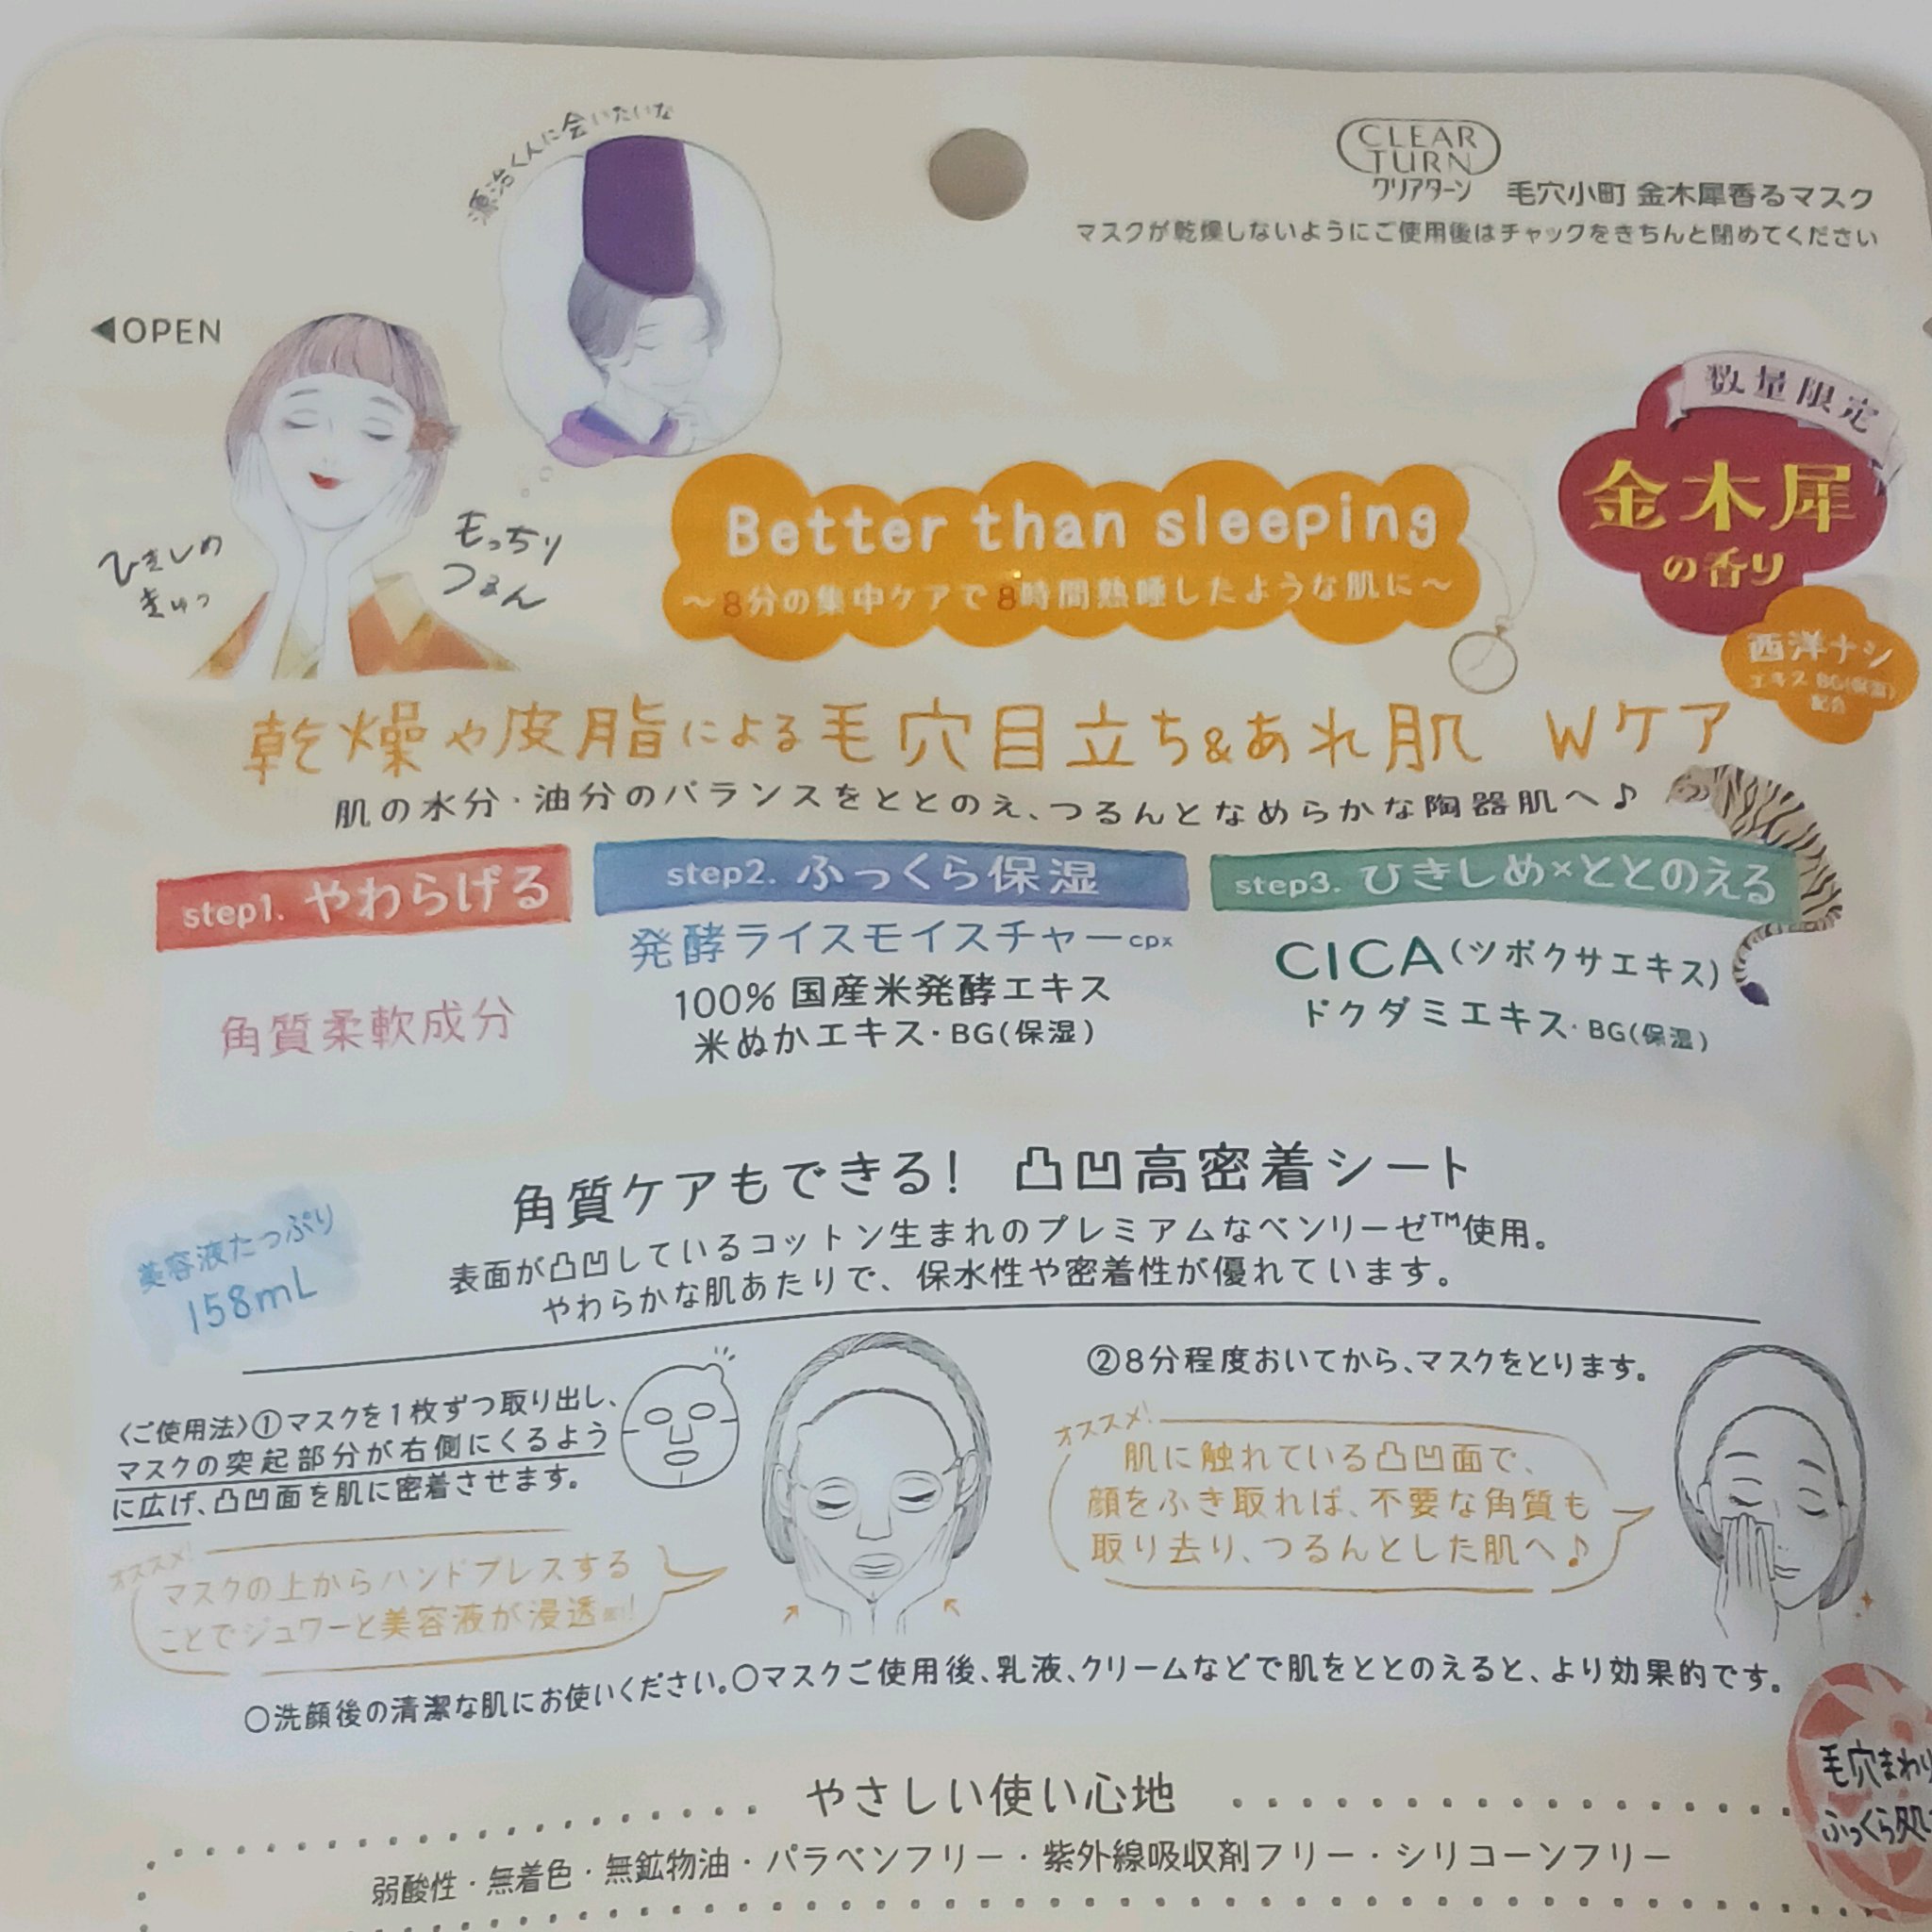 源治くんに会いたいな
CLEAR
TURN
クリアターン 毛穴小町 金木犀香るマスク
マスクが乾燥しないようにご使用後はチャックをきちんと閉めてください
◀OPEN
数量限定
金木犀
の香り
西洋ナシ
エキス BG(保湿)
配合
ひきしめ
きゅっ
もっちり
つるん
Better than sleeping
～8分の集中ケアで8時間熟睡したような肌に～
乾燥や皮脂による毛穴目立ち&あれ肌 Wケア
肌の水分・油分のバランスをととのえ、つるんとなめらかな陶器肌へ♪
step1. やわらげる
角質柔軟成分
step2. ふっくら保湿
発酵ライスモイスチャーcpx
100% 国産米発酵エキス
米ぬかエキス・BG(保湿)
step3. ひきしめ×ととのえる
CICA(ツボクサエキス)
ドクダミエキス・BG(保湿)
角質ケアもできる! 凸凹高密着シート
美容液たっぷり
158mL
表面が凸凹しているコットン生まれのプレミアムなベンリーゼ™使用。
やわらかな肌あたりで、保水性や密着性が優れています。
〈ご使用法〉①マスクを1枚ずつ取り出し、
マスクの突起部分が右側にくるよう
に広げ、凸凹面を肌に密着させます。
オススメ!
マスクの上からハンドプレスする
ことでジュワーと美容液が浸透!
②8分程度おいてから、マスクをとります。
オススメ!
肌に触れている凸凹面で、
顔をふき取れば、不要な角質も
取り去り、つるんとした肌へ♪
○洗顔後の清潔な肌にお使いください。○マスクご使用後、乳液、クリームなどで肌をととのえると、より効果的です。
毛穴まわり
ふっくら肌
やさしい使い心地
弱酸性・無着色・無鉱物油・パラベンフリー・紫外線吸収剤フリー・シリコーンフリー